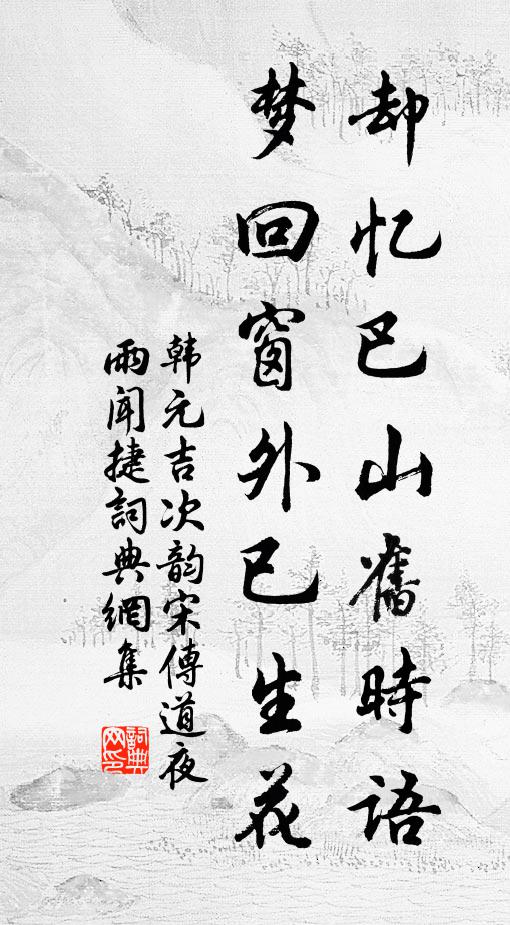 却忆巴山舊時語
梦回窗外已生花
韩元吉次韵宋傳道夜
雨闻捷詞典網集
詞典网印